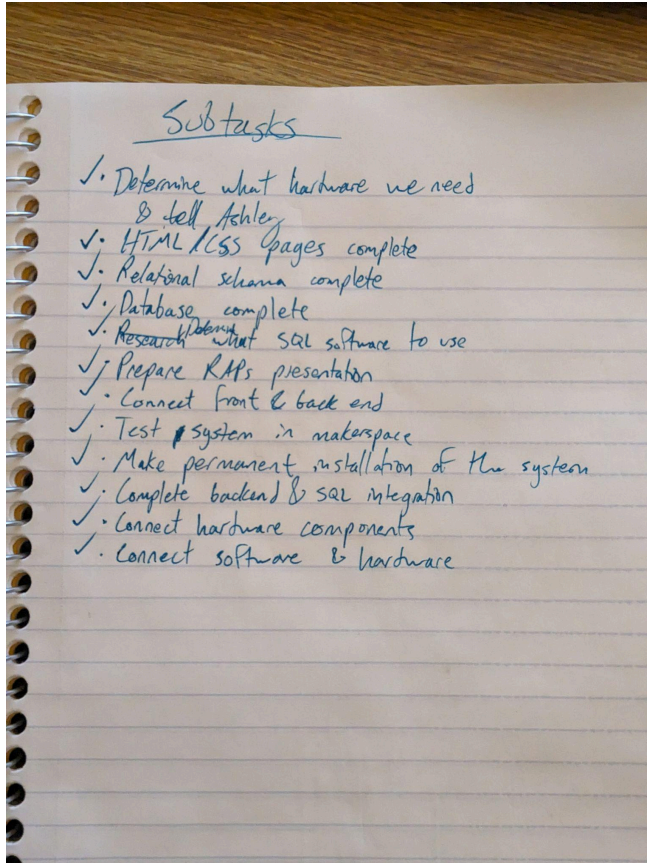 Subtasks
✓ · Determine what hardware we need
& tell Ashley
✓ · HTML/CSS pages complete
✓ · Relational schema complete
✓ · Database complete
✓ · Research Determine what SQL software to use
✓ · Prepare RAPs presentation
✓ · Connect front & back end
✓ · Test system in makerspace
✓ · Make permanent installation of the system
✓ · Complete backend & SQL integration
✓ · Connect hardware components
✓ · Connect software & hardware